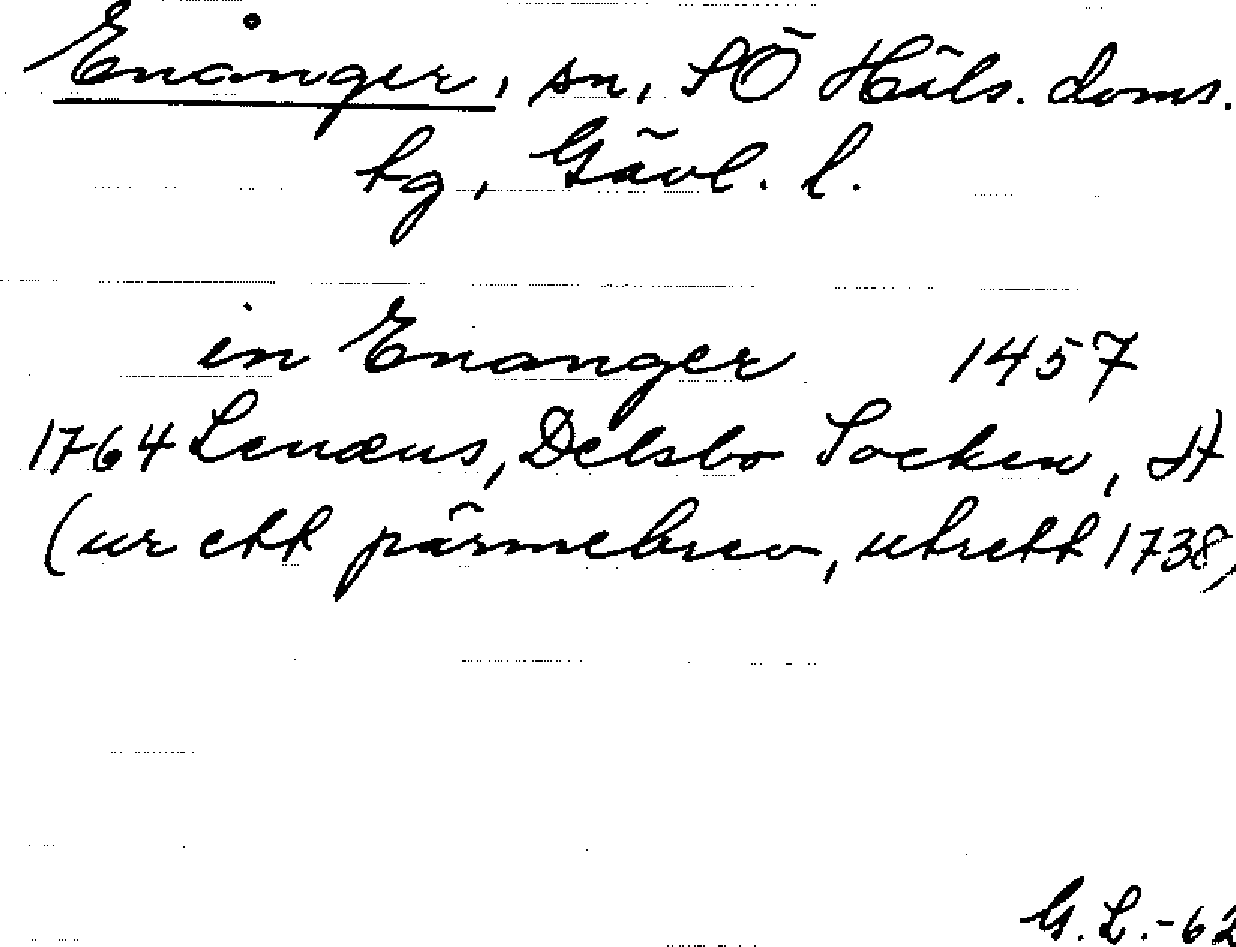 Enånger, sn, SÖ Häls. doms.
tg, Gävl. l.
in Enanger 1457
1764 Lenæus, Delsbo Socken, H
(ur ett pärmebrev, utrett 1738,
G. L. -62